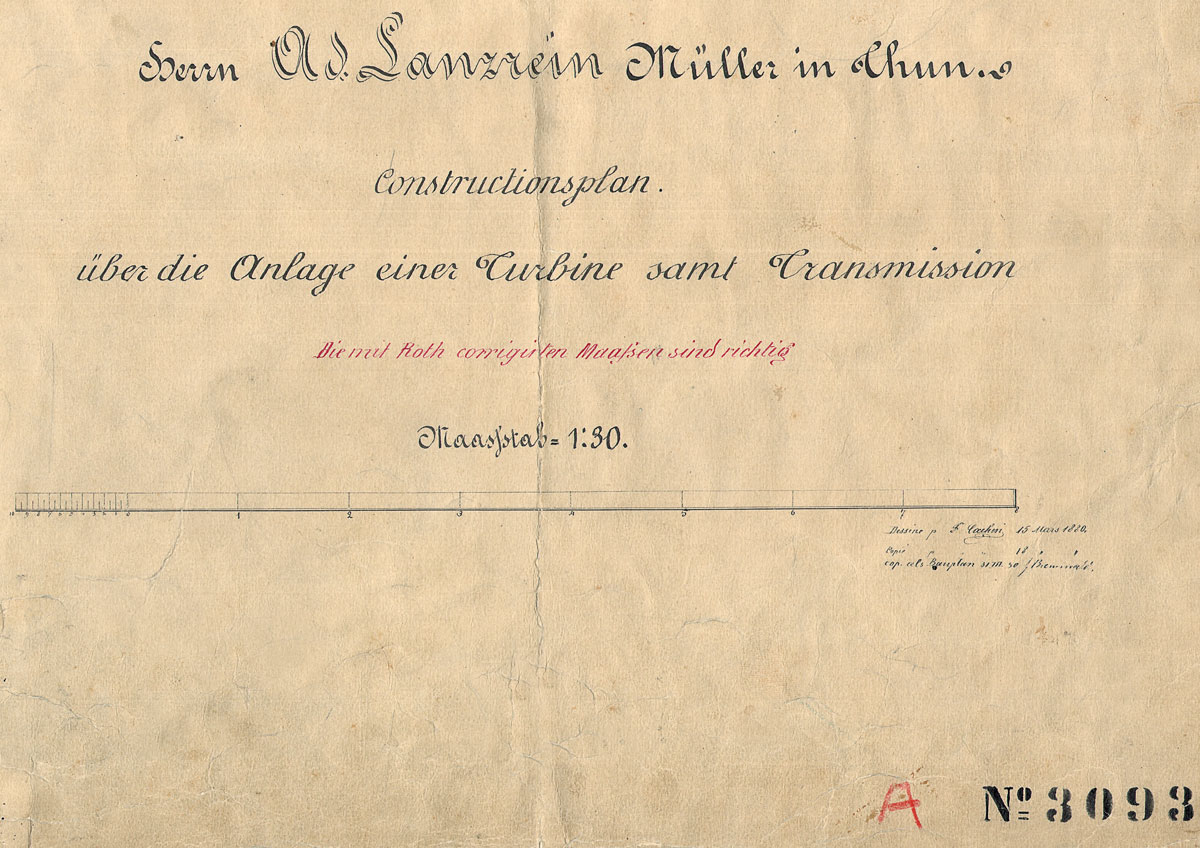 Herrn Ad. Lanzrein Müller in Thun.
Constructionsplan.
über die Anlage einer Turbine samt Transmission
Die mit Roth corrigirten Maaßen sind richtig
Maassstab = 1:30.
10 9 8 7 6 5 4 3 2 1 0 1 2 3 4 5 6 7 8
Dessiné p F. 15 Mars 1880.
Copié 18
cop. als Bauplan
A Nº 3093